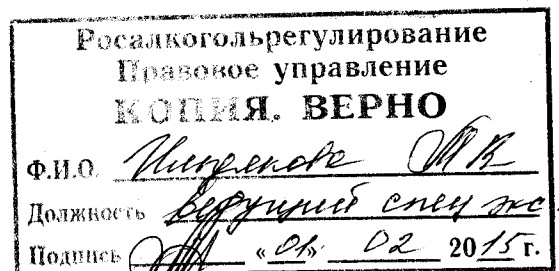 Росалкогольрегулирование
Правовое управление
КОПИЯ. ВЕРНО
Ф.И.О. Т В
Должность ведущий спец экс
Подпись «01» 02 2015 г.